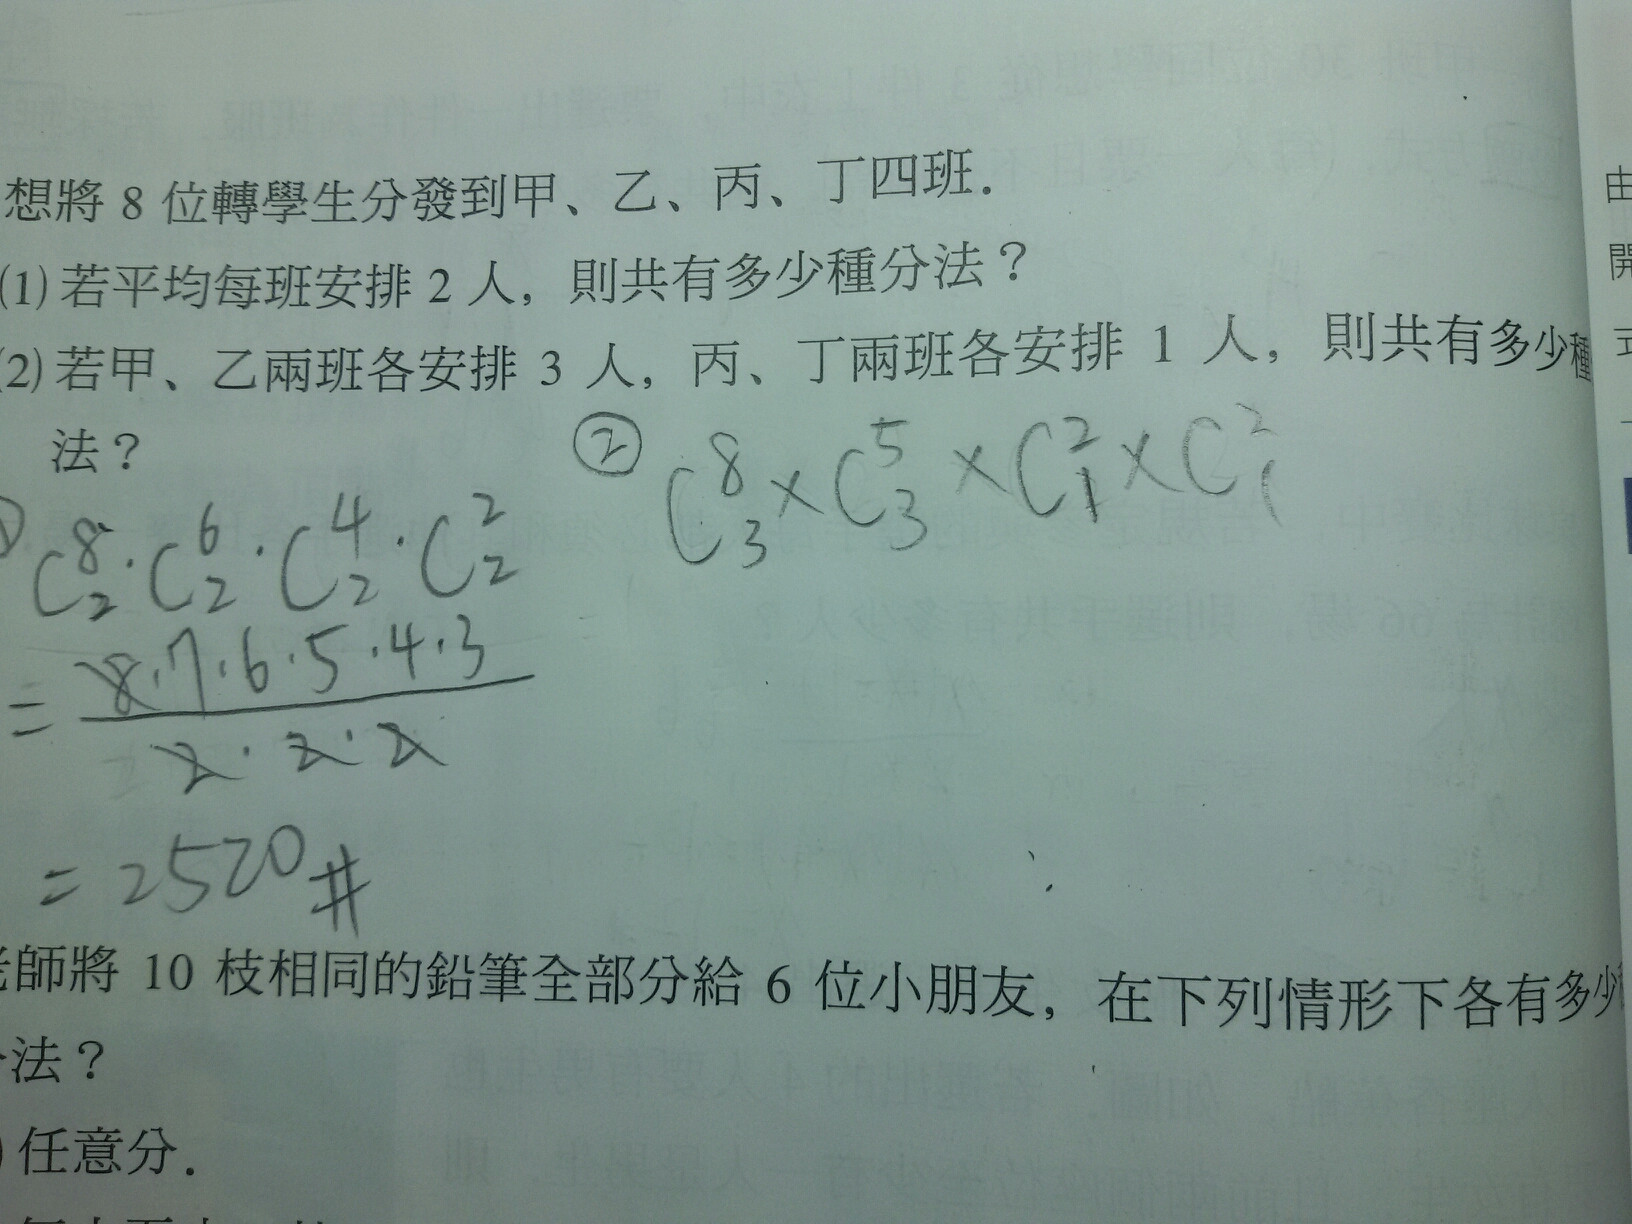 想將 8 位轉學生分發到甲、乙、丙、丁四班.
(1) 若平均每班安排 2 人，則共有多少種分法？
(2) 若甲、乙兩班各安排 3 人，丙、丁兩班各安排 1 人，則共有多少種
法？
② C⁸₃ × C⁵₃ × C²₁ × C²₁
C⁸₂ · C⁶₂ · C⁴₂ · C²₂
= 8·7·6·5·4·3
2·2·2
= 2520 #
老師將 10 枝相同的鉛筆全部分給 6 位小朋友，在下列情形下各有多少
法？
任意分.
由
開